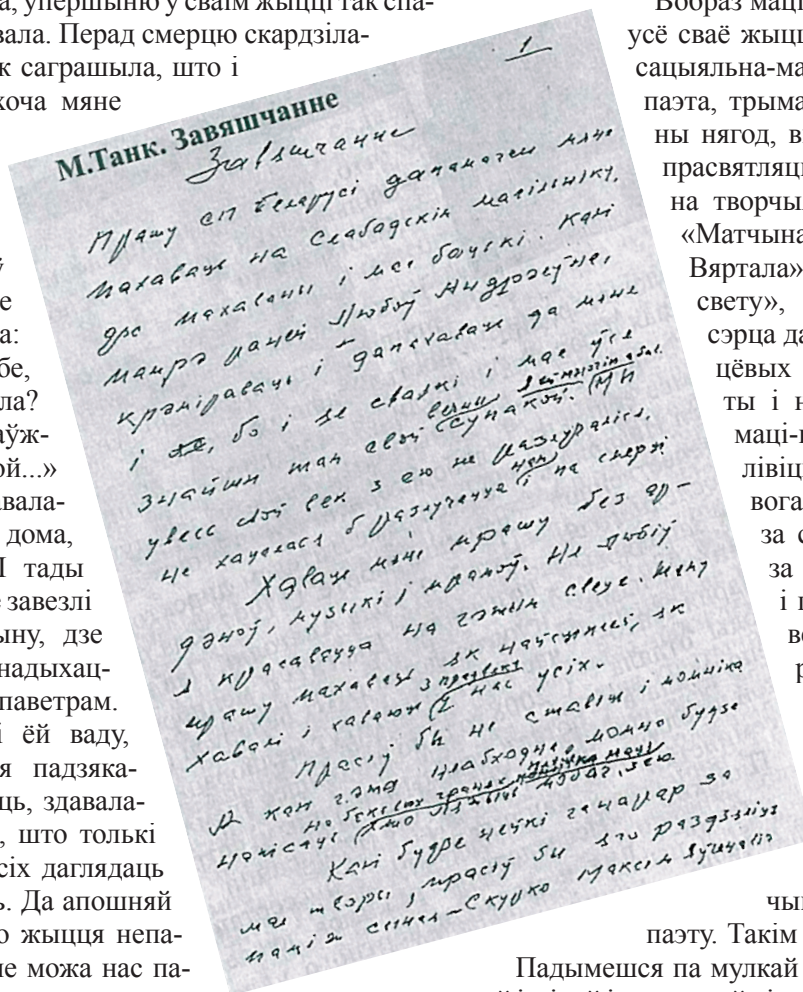 а, упершыню ў сваім жыцці так спа-
вала. Перад смерцю скардзіла-
к саграшыла, што і
хоча мяне
ў
е
а:
бе,
ла?
аўж-
ой...»
авала-
дома,
І тады
завезлі
ыну, дзе
надыхац-
паветрам.
і ёй ваду,
я падзяка-
ць, здавала-
, што толькі
сіх даглядаць
ь. Да апошняй
о жыцця непа-
не можа нас па-
М.Танк. Завяшчанне
1
Завяшчанне
Прашу СП Беларусі дапамагчы мяне
пахаваць на Слабадскіх могілках,
дзе пахаваны і мае бацькі. Калі
памрэ раней Любоў Андрэеўна,
крэміраваць і дапахаваць да мяне
і бо і яе сваякі і мае ўсе
знайшлі там свой вечны супакой. Мы
увесь свой век з ёю не разлучаліся,
не хацелася б разлучацца нам і па смерці
Хаваць мяне прашу без ар-
дэноў, музыкі і прамоў. Не любіў
я красавацца на гэтым свеце. Таму
прашу пахаваць як найсціплей, як
хавалі і хаваюць з продкаў нас усіх.
Прасіў бы не ставіць і помніка
А калі гэта неабходна, можна будзе
напісаць
Калі будзе нейкі ганарар за
мае творы, прасіў бы яго раздзяліць
паміж сынам – Скурко Максім
Вобраз маці
усё сваё жыцц
сацыяльна-ма
паэта, трыма
ны нягод, в
прасвятляц
на творчы
«Матчына
Вяртала»
свету»,
сэрца да
цёвых
ты і н
маці-
лівіц
вога
за с
за
і п
в
р
чы
паэту. Такім
Падымешся па мулкай